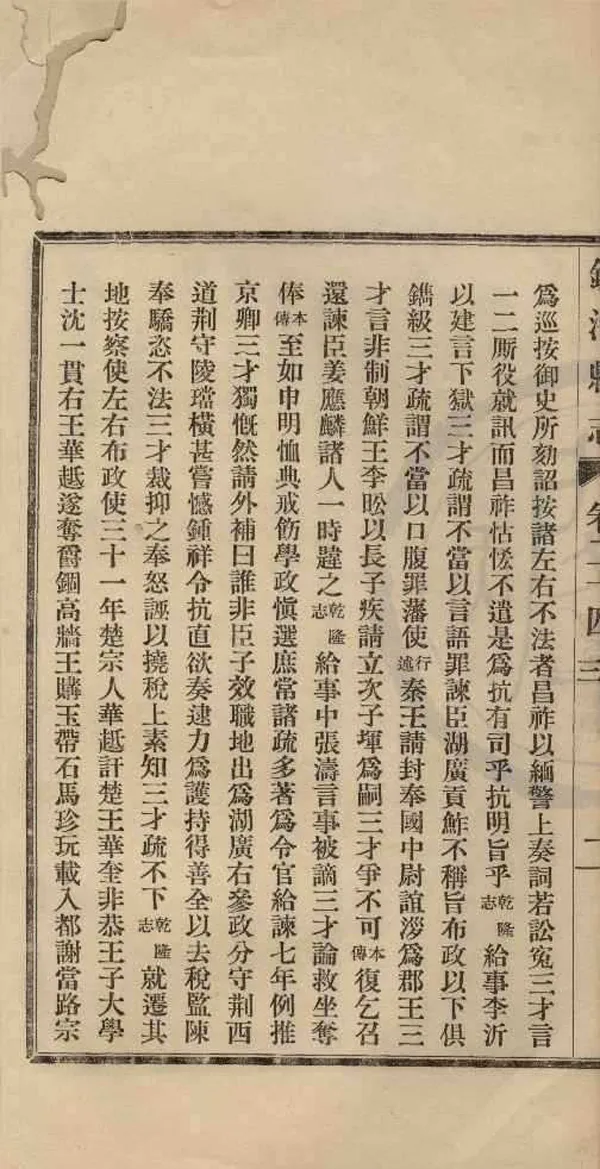 鍾祥縣志 卷二十四 三
爲巡按御史所劾詔按諸左右不法者昌祚以緬警上奏詞若訟冤三才言
一二廝役就訊而昌祚怙惏不遣是爲抗有司乎抗明旨乎乾隆志給事李沂
以建言下獄三才疏謂不當以言語罪諫臣湖廣貢鮓不稱旨布政以下俱
鐫級三才疏謂不當以口腹罪藩使行述秦王請封奉國中尉誼漻爲郡王三
才言非制朝鮮王李昖以長子疾請立次子琿爲嗣三才爭不可本傳復乞召
還諫臣姜應麟諸人一時韙之乾隆志給事中張濤言事被謫三才論救坐奪
俸本傳至如申明恤典戒飭學政愼選庶常諸疏多著爲令官給諫七年例推
京卿三才獨慨然請外補曰誰非臣子效職地出爲湖廣右參政分守荆西
道荆守陵璫橫甚嘗憾鍾祥令抗直欲奏逮力爲護持得善全以去稅監陳
奉驕恣不法三才裁抑之奉怒誣以撓稅上素知三才疏不下乾隆志就遷其
地按察使左右布政使三十一年楚宗人華趆訐楚王華奎非恭王子大學
士沈一貫右王華趆遂奪爵錮高牆王購玉帶石馬珍玩載入都謝當路宗